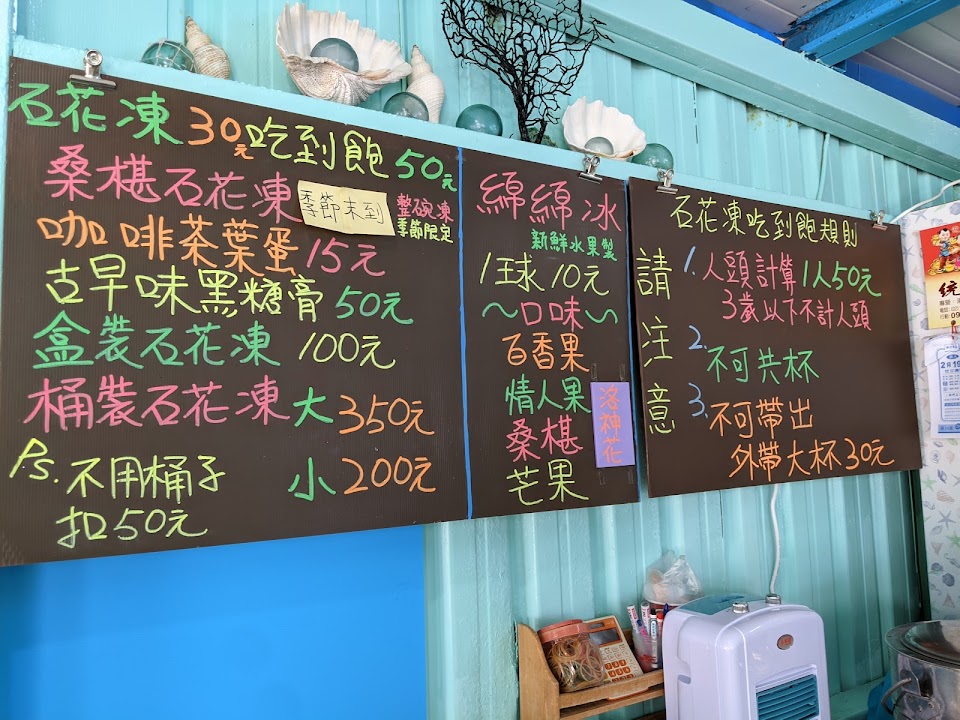 石花凍30元吃到飽50元
桑椹石花凍 季節未到 整碗凍
季節限定
咖啡茶葉蛋15元
古早味黑糖膏50元
盒裝石花凍 100元
桶裝石花凍大350元
小200元
Ps.不用桶子
扣50元
綿綿冰
新鮮水果製
1球10元
~口味~
百香果
情人果
桑椹
芒果
洛神花
石花凍吃到飽規則
請注意
1.人頭計算1人50元
3歲以下不計人頭
2.不可共杯
3.不可帶出
外帶大杯30元
统